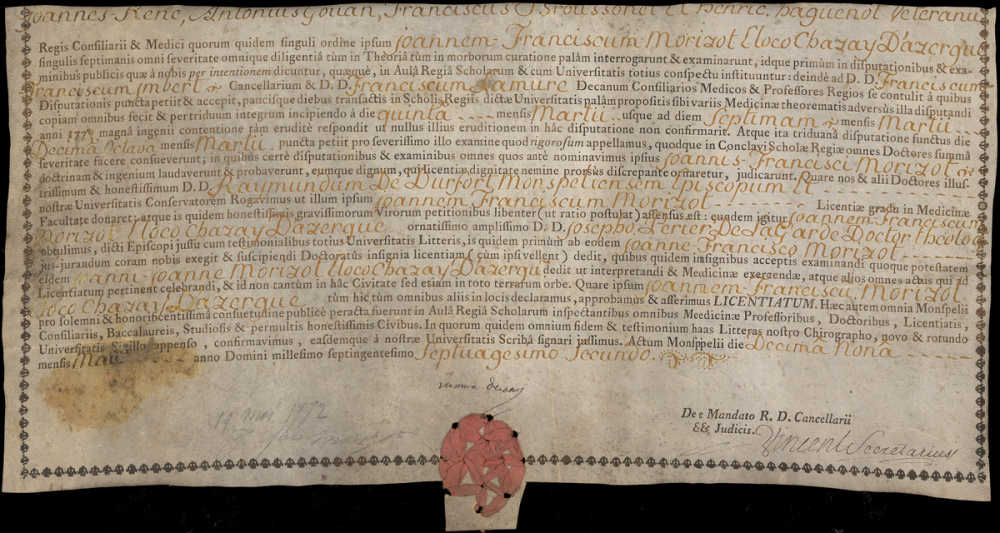 Joannes-René, Antonius Gouan, Franciscus Broussonet et Henric. Haguenot Veteranus
Regis Consiliarii & Medici quorum quidem singuli ordine ipsum Joannem-Franciscum Morizot E loco Chazay D'azergue
singulis septimanis omni severitate omnique diligentiâ tùm in Theoriâ tùm in morborum curatione palàm interrogarunt & examinarunt, idque primùm in disputationibus & exa-
minibus publicis quæ à nobis per intentionem dicuntur, quæque, in Aulâ Regiâ Scholarum & cum Universitatis totius conspectu instituuntur: deindè ad D. D. Franciscum
Franciscum Imbert & Cancellarium & D. D. Franciscum Lamure Decanum Consiliarios Medicos & Professores Regios se contulit à quibus
Disputationis puncta petiit & accepit, paucisque diebus transactis in Scholis Regiis dictæ Universitatis palàm propositis sibi variis Medicinæ theorematis adversùs illa disputandi
copiam omnibus fecit & per triduum integrum incipiendo à die quinta mensis Martii usque ad diem Septimam & mensis Martii
anni 1772 magnâ ingenii contentione tàm eruditè respondit ut nullus illius eruditionem in hâc disputatione non confirmarit. Atque ita triduanâ disputatione functus die
Decima Octava mensis Martii puncta petiit pro severissimo illo examine quod rigorosum appellamus, quodque in Conclavi Scholæ Regiæ omnes Doctores summâ
severitate facere consueverunt; in quibus certè disputationibus & examinibus omnes quos antè nominavimus ipsius Joannis-Francisci Morizot &
doctrinam & ingenium laudaverunt & probaverunt, eumque dignum, qui licentiæ dignitate nemine prorsùs discrepante ornaretur, judicarunt. Quare nos & alii Doctores illus-
trissimum & honestissimum D. D. Raymundum De Durfort Monspeliensem Episcopum Et
nostræ Universitatis Conservatorem Rogavimus ut illum ipsum Joannem Franciscum Morizot Licentiæ gradu in Medicinæ
Facultate donaret; atque is quidem honestissimis gravissimorum Virorum petitionibus libenter (ut ratio postulat) assensus est: eundem igitur Joannem-Franciscum
Morizot E loco Chazay Dazergue ornatissimo amplissimo D. D. Josepho Perier De La Garde Doctor theolog
obtulimus, dicti Episcopi jussu cum testimonialibus totius Universitatis Litteris, is quidem primùm ab eodem Joanne-Francisco Morizot
jus-jurandum coram nobis exegit & suscipiendi Doctoratûs insignia licentiam (cùm ipsi vellent) dedit, quibus quidem insignibus acceptis examinandi quoque potestatem
eidem Joanni-Joanne Morizot E loco Chazay D'azergu dedit ut interpretandi & Medicinæ exercendæ, atque alios omnes actus qui ad
Licentiatum pertinent celebrandi, & id non tantùm in hâc Civitate sed etiam in toto terrarum orbe. Quare ipsum Joannem-Franciscu Morizot
E loco Chazay Dazergue tùm hîc tùm omnibus aliis in locis declaramus, approbamus & asserimus LICENTIATUM. Hæc autem omnia Monspelii
pro solemni & honorificentissimâ consuetudine publicè peracta fuerunt in Aulâ Regiâ Scholarum inspectantibus omnibus Medicinæ Professoribus, Doctoribus, Licentiatis,
Consiliariis, Baccalaureis, Studiosis & permultis honestissimis Civibus. In quorum quidem omnium fidem & testimonium hæs Litteras nostro Chirographo, novo & rotundo
Universitatis Sigillo appenso, confirmavimus, easdemque à nostræ Universitatis Scribâ signari jussimus. Actum Monsppelii die Decimâ Nonâ
mensis Maii anno Domini millesimo septingentesimo Septuagesimo Secundo.
Lamure decanus
19 may 1772
De e Mandato R. D. Cancellarii
&& Judicis. Vincent Secretarius